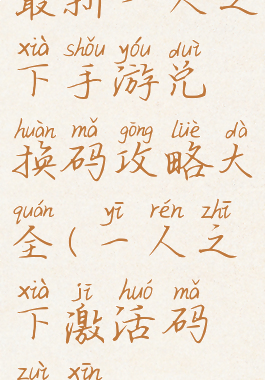 最新一人之
xià shǒu yóu duì
下手游兑
huàn mǎ gōng lüè dà
换码攻略大
quán yī rén zhī
全(一人之
xià jī huó mǎ
下激活码
zuì xīn